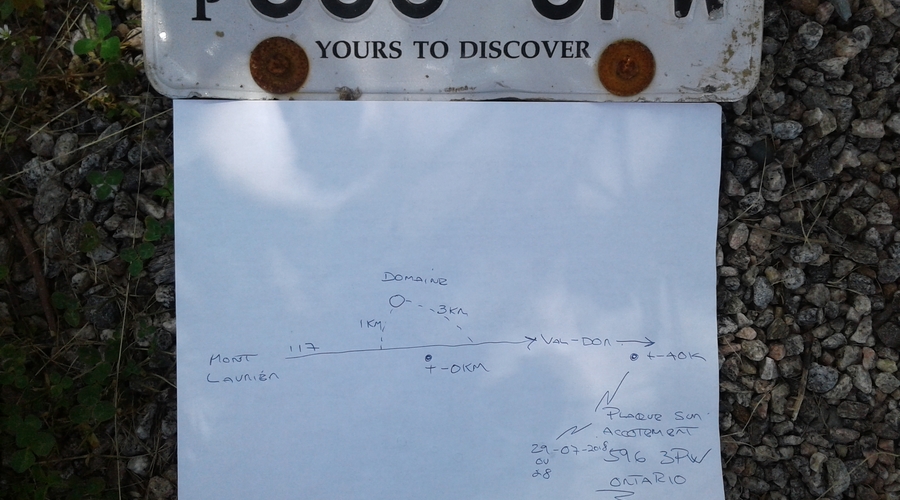 YOURS TO DISCOVER
DOMAINE
1KM
3KM
117
MONT
LAURIER
VAL-DOR
+-0KM
+-40K
PLAQUE SUR
ACCOTEMENT
29-07-2018
OU
28
596 3PW
ONTARIO